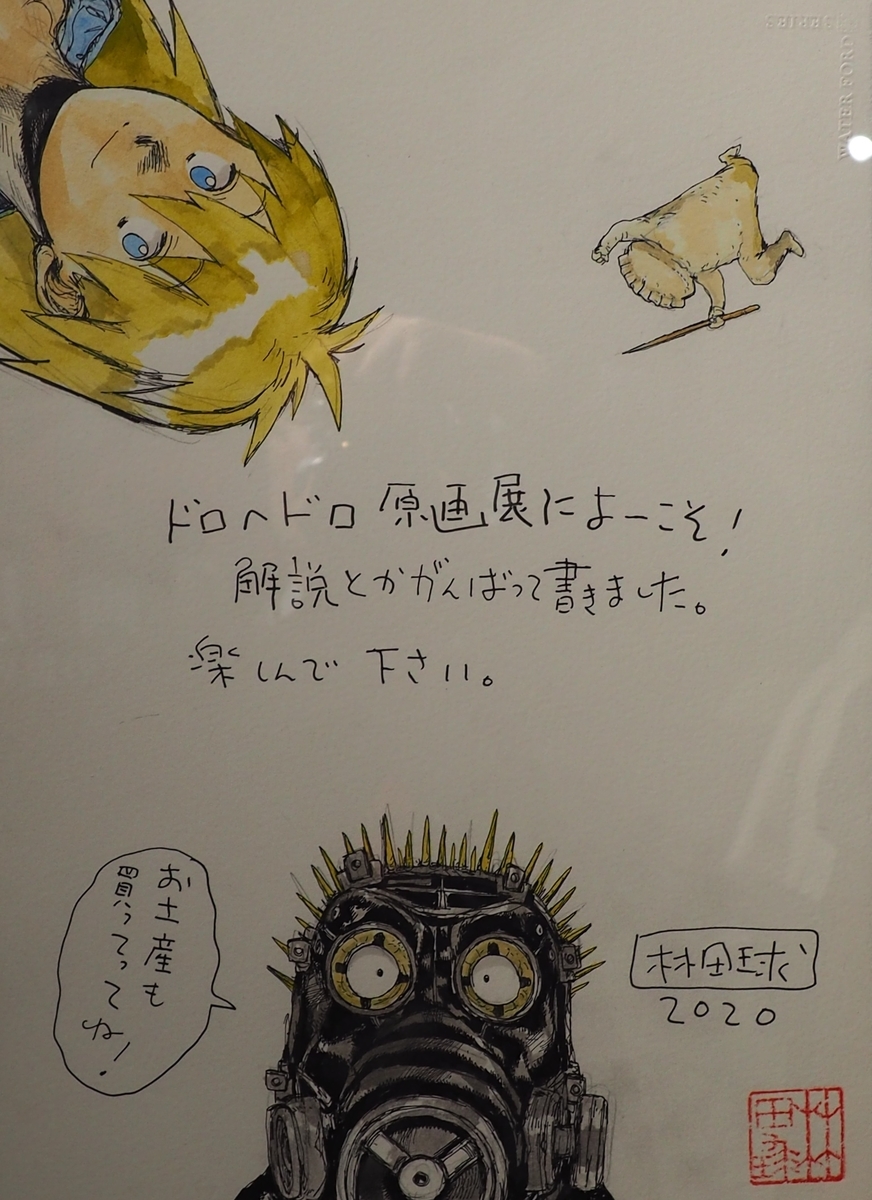 WATER FORD
SERIES
ドロヘドロ 原画展によーこそ!
解説とかがんばって書きました。
楽しんで 下さい。
お土産も
買ってってね!
林田球
2020